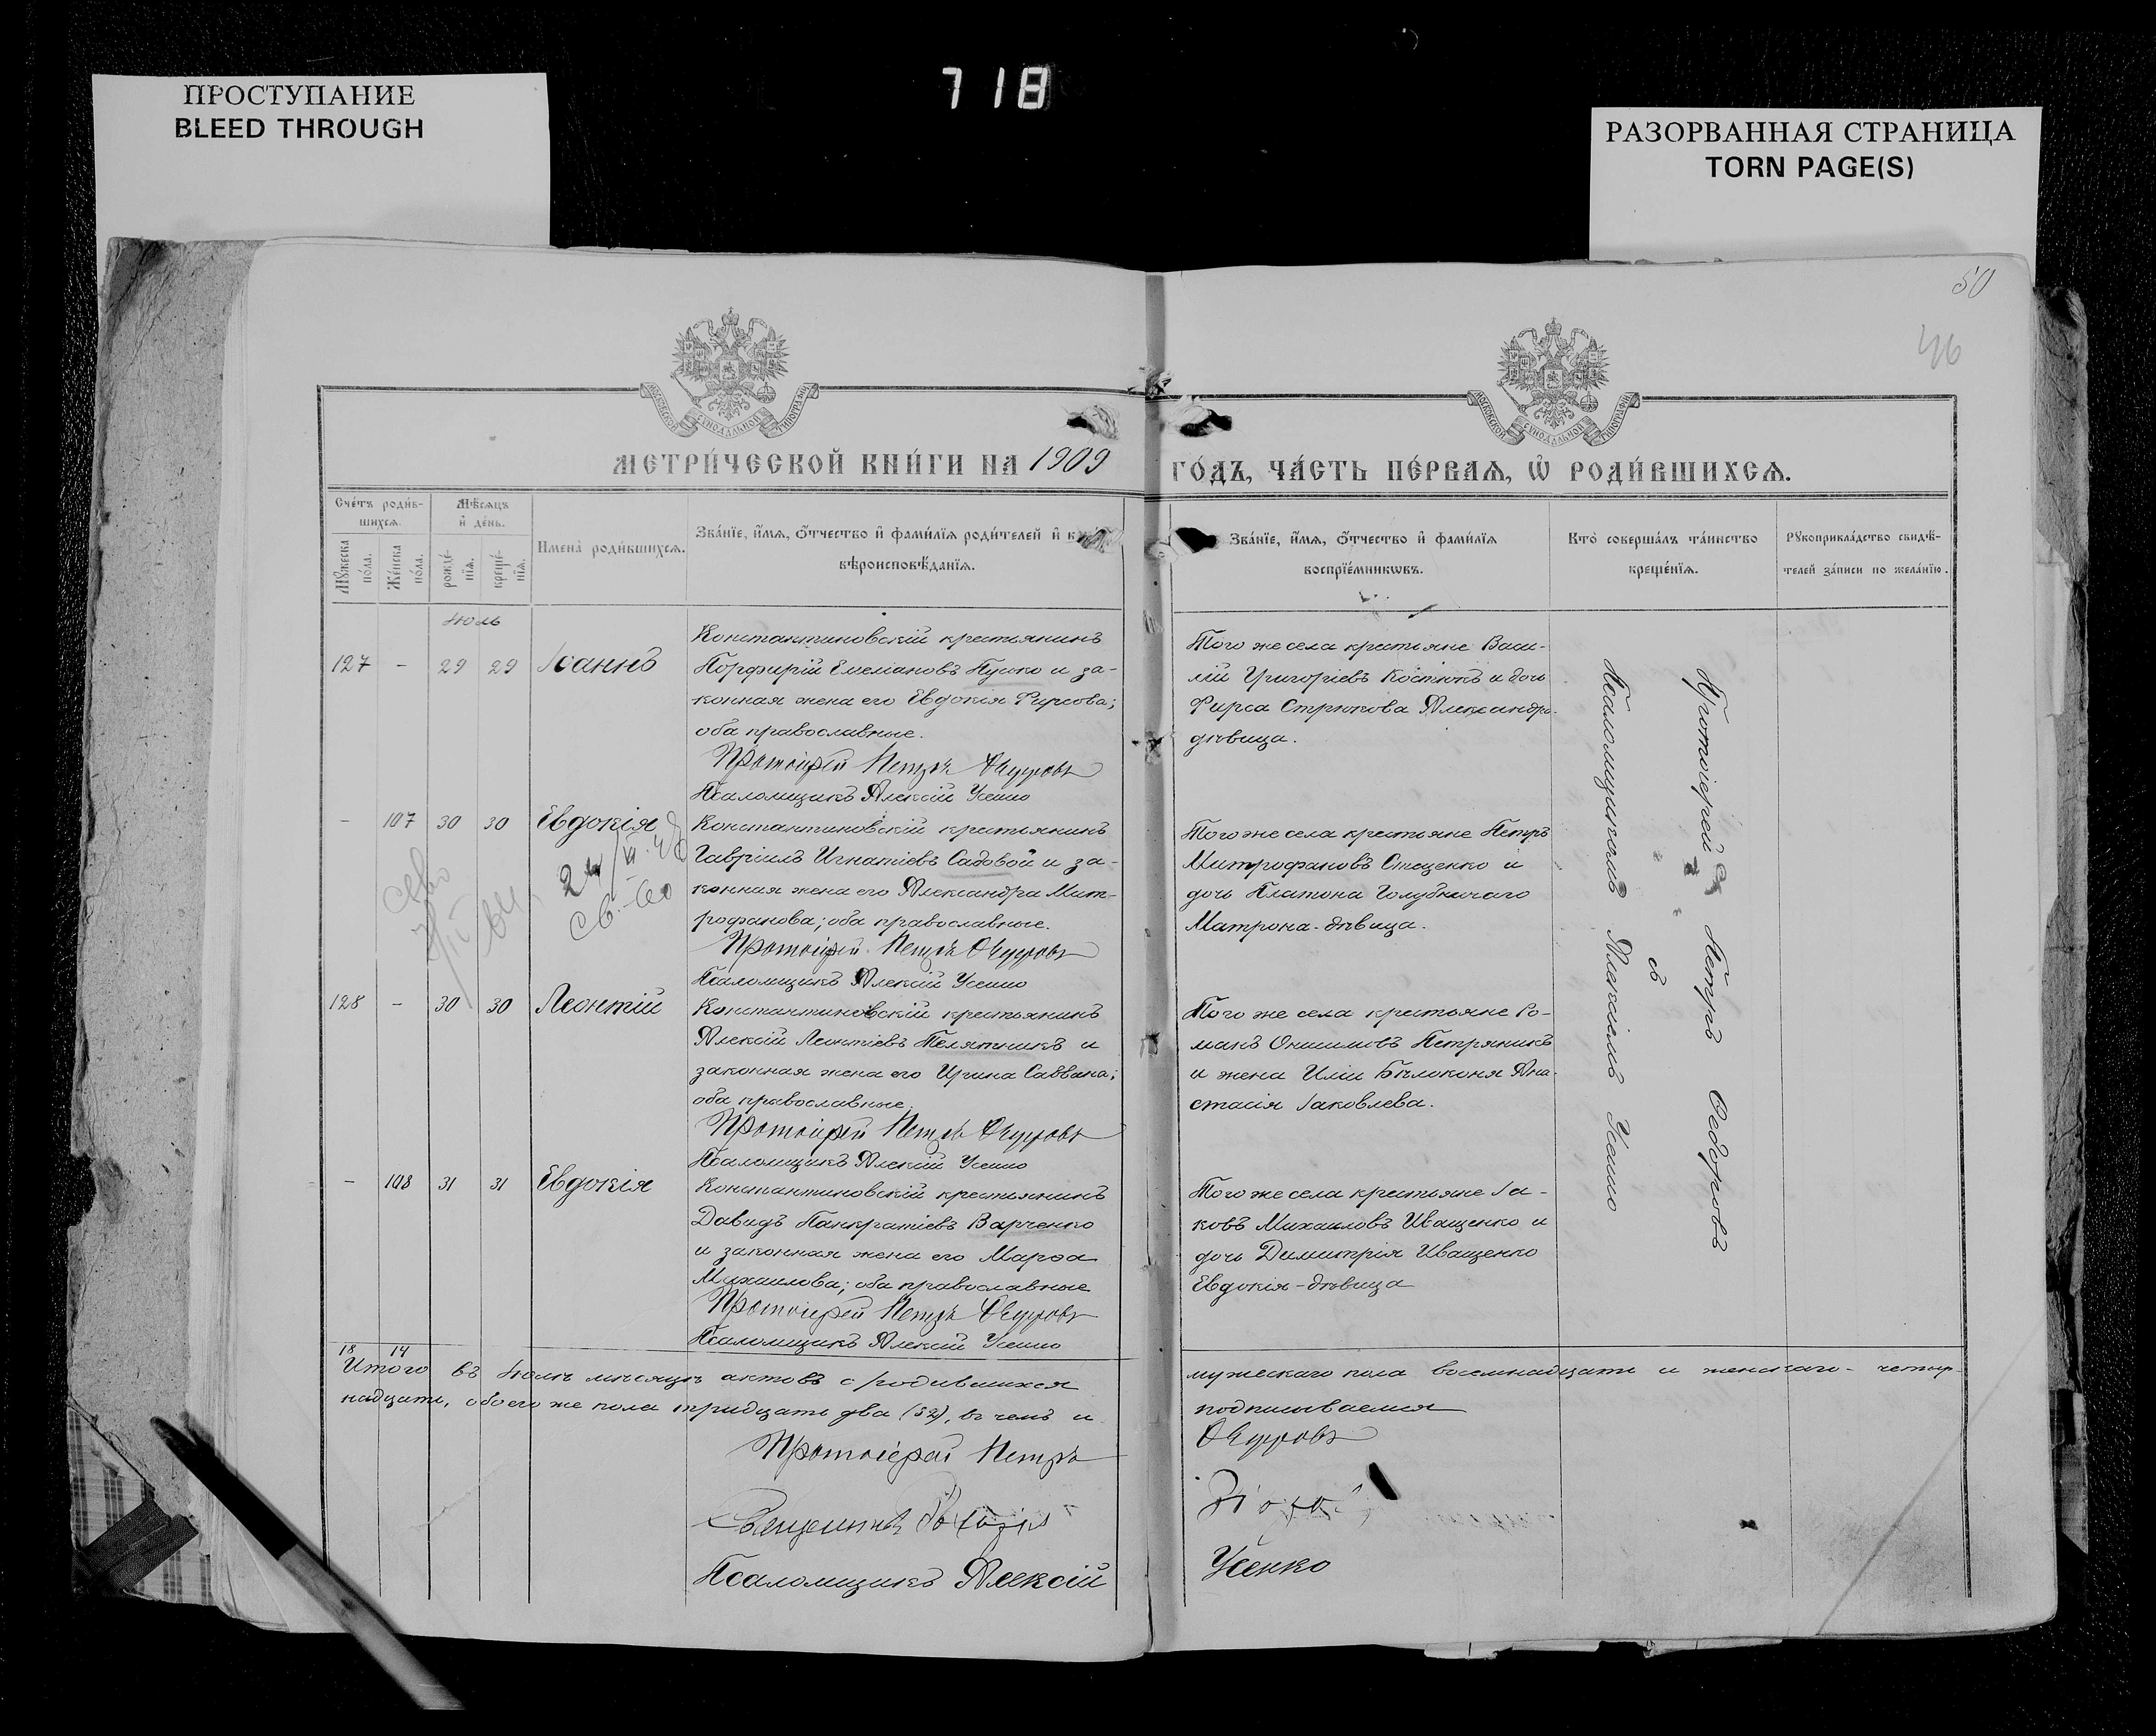 718
ПРОСТУПАНИЕ
BLEED THROUGH
РАЗОРВАННАЯ СТРАНИЦА
TORN PAGE(S)
50
46
МОСКОВСКОЙ СѴНОДАЛЬНОЙ ТИПОГРАФІИ
МОСКОВСКОЙ СѴНОДАЛЬНОЙ ТИПОГРАФІИ
МЕТРИ́ЧЕСКОЙ КНИ́ГИ НА 1909
ГО́ДЪ, ЧА́СТЬ ПЕ́РВАѦ, Ѡ РОДИ́ВШИХСѦ.
Сче́тъ роди́в-
шихсѧ.
Мѣ́сѧцъ
и҆ де́нь.
Мꙋ́жеска
по́ла.
Же́нска
по́ла.
рожде́-
нїѧ.
креще́-
нїѧ.
Имена̀ роди́вшихсѧ.
Зва́нїе, и҆́мѧ, ѻ҆́тчество и҆ фами́лїѧ роди́телей и҆
вѣроисповѣ́данїѧ.
Зва́нїе, и҆́мѧ, ѻ҆́тчество и҆ фами́лїѧ
воспрїе́мникѡвъ.
Кто̀ соверша́лъ та́инство
креще́нїѧ.
Рꙋкоприкла́дство свидѣ́-
телей за́писи по жела́нїю.
Іюль
127 - 29 29 Іоаннъ
Константиновскій крестьянинъ
Порфирій Емеліановъ Пушко и за-
конная жена его Евдокія Фирсова;
оба православные.
Протоіерей Петръ Ѳедоровъ
Псаломщикъ Алексій Усенко
Того же села крестьяне Васи-
лій Григоріевъ Костюкъ и дочь
Фирса Стрюкова Александра-
дѣвица.
- 107 30 30 Евдокія
Константиновскій крестьянинъ
Гавріилъ Игнатіевъ Садовой и за-
конная жена его Александра Мит-
рофанова; оба православные.
Протоіерей Петръ Ѳедоровъ
Псаломщикъ Алексій Усенко
Того же села крестьяне Петръ
Митрофановъ Стеценко и
дочь Платона Голубничаго
Матрона-дѣвица.
128 - 30 30 Леонтій
Константиновскій крестьянинъ
Алексій Леонтіевъ Телятникъ и
законная жена его Ирина Саввина;
оба православные.
Протоіерей Петръ Ѳедоровъ
Псаломщикъ Алексій Усенко
Того же села крестьяне Ро-
манъ Онисимовъ Петряникъ
и жена Иліи Бѣлоконя Ана-
стасія Іаковлева.
- 108 31 31 Евдокія
Константиновскій крестьянинъ
Давидъ Панкратіевъ Варченко
и законная жена его Марѳа
Михаилова; оба православные
Протоіерей Петръ Ѳедоровъ
Псаломщикъ Алексій Усенко
Того же села крестьяне Іа-
ковъ Михаиловъ Иващенко и
дочь Димитрія Иващенко
Евдокія-дѣвица
Протоіерей Петръ Ѳедоровъ
съ
Псаломщикомъ Алексіемъ Усенко
18 14
Итого въ Іюлѣ мѣсяцѣ актовъ о родившихся
мужескаго пола восемнадцать и женскаго - четыр-
надцать, обоего же пола тридцать два (32), въ чемъ и
подписываемся
Протоіерей Петръ
Ѳедоровъ
Священникъ
Псаломщикъ Алексій
Усенко